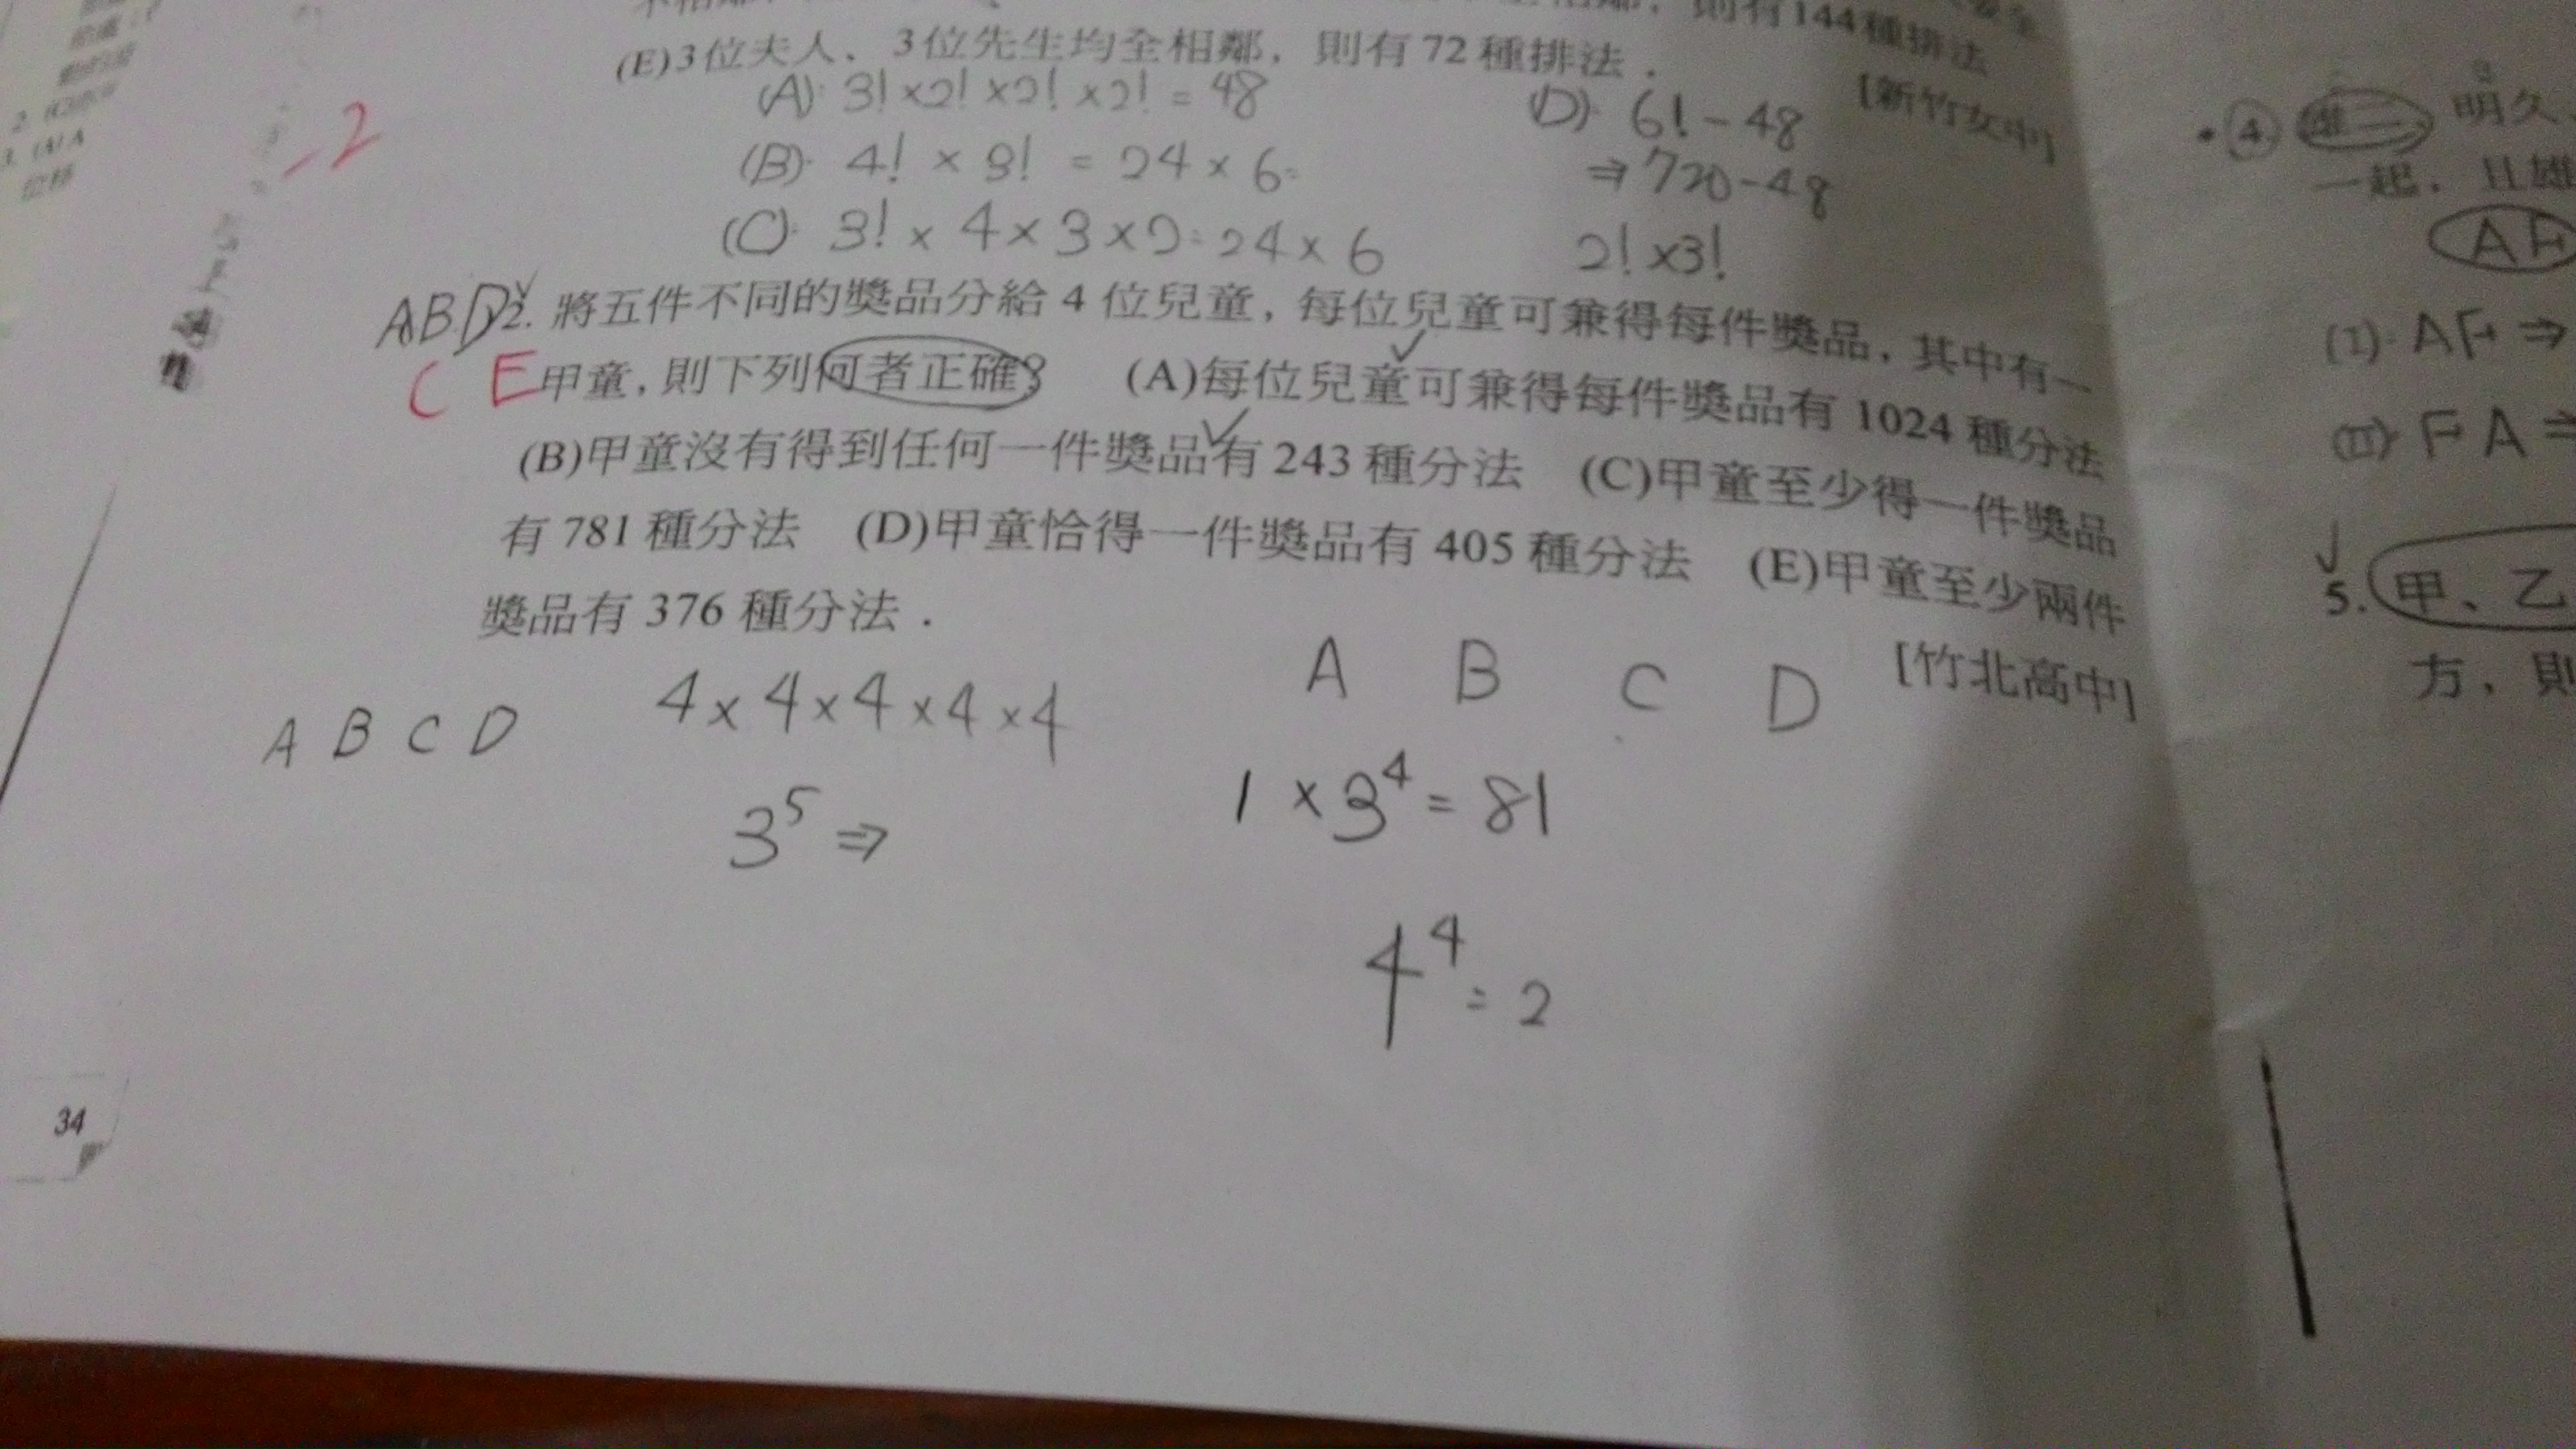 則有144種排法
(E)3位夫人、3位先生均全相鄰,則有72種排法.
[新竹女中]
(A) 3! × 2! × 2! × 2! = 48
(B) 4! × 3! = 24 × 6
(C) 3! × 4 × 3 × 2 = 24 × 6
(D) 6! - 48
⇒ 720 - 48
2! × 3!
-2
ABD
C E
2. 將五件不同的獎品分給 4 位兒童,每位兒童可兼得每件獎品,其中有一
甲童,則下列何者正確? (A)每位兒童可兼得每件獎品有 1024 種分法
(B)甲童沒有得到任何一件獎品有 243 種分法 (C)甲童至少得一件獎品
有 781 種分法 (D)甲童恰得一件獎品有 405 種分法 (E)甲童至少兩件
獎品有 376 種分法.
[竹北高中]
A B C D
4 × 4 × 4 × 4 × 4
3⁵ ⇒
A B C D
1 × 3⁴ = 81
4⁴ = 2
34
4. 明久
一起,且雄
AF
(I) AF ⇒
(II) FA ⇒
5. 甲、乙
方,則